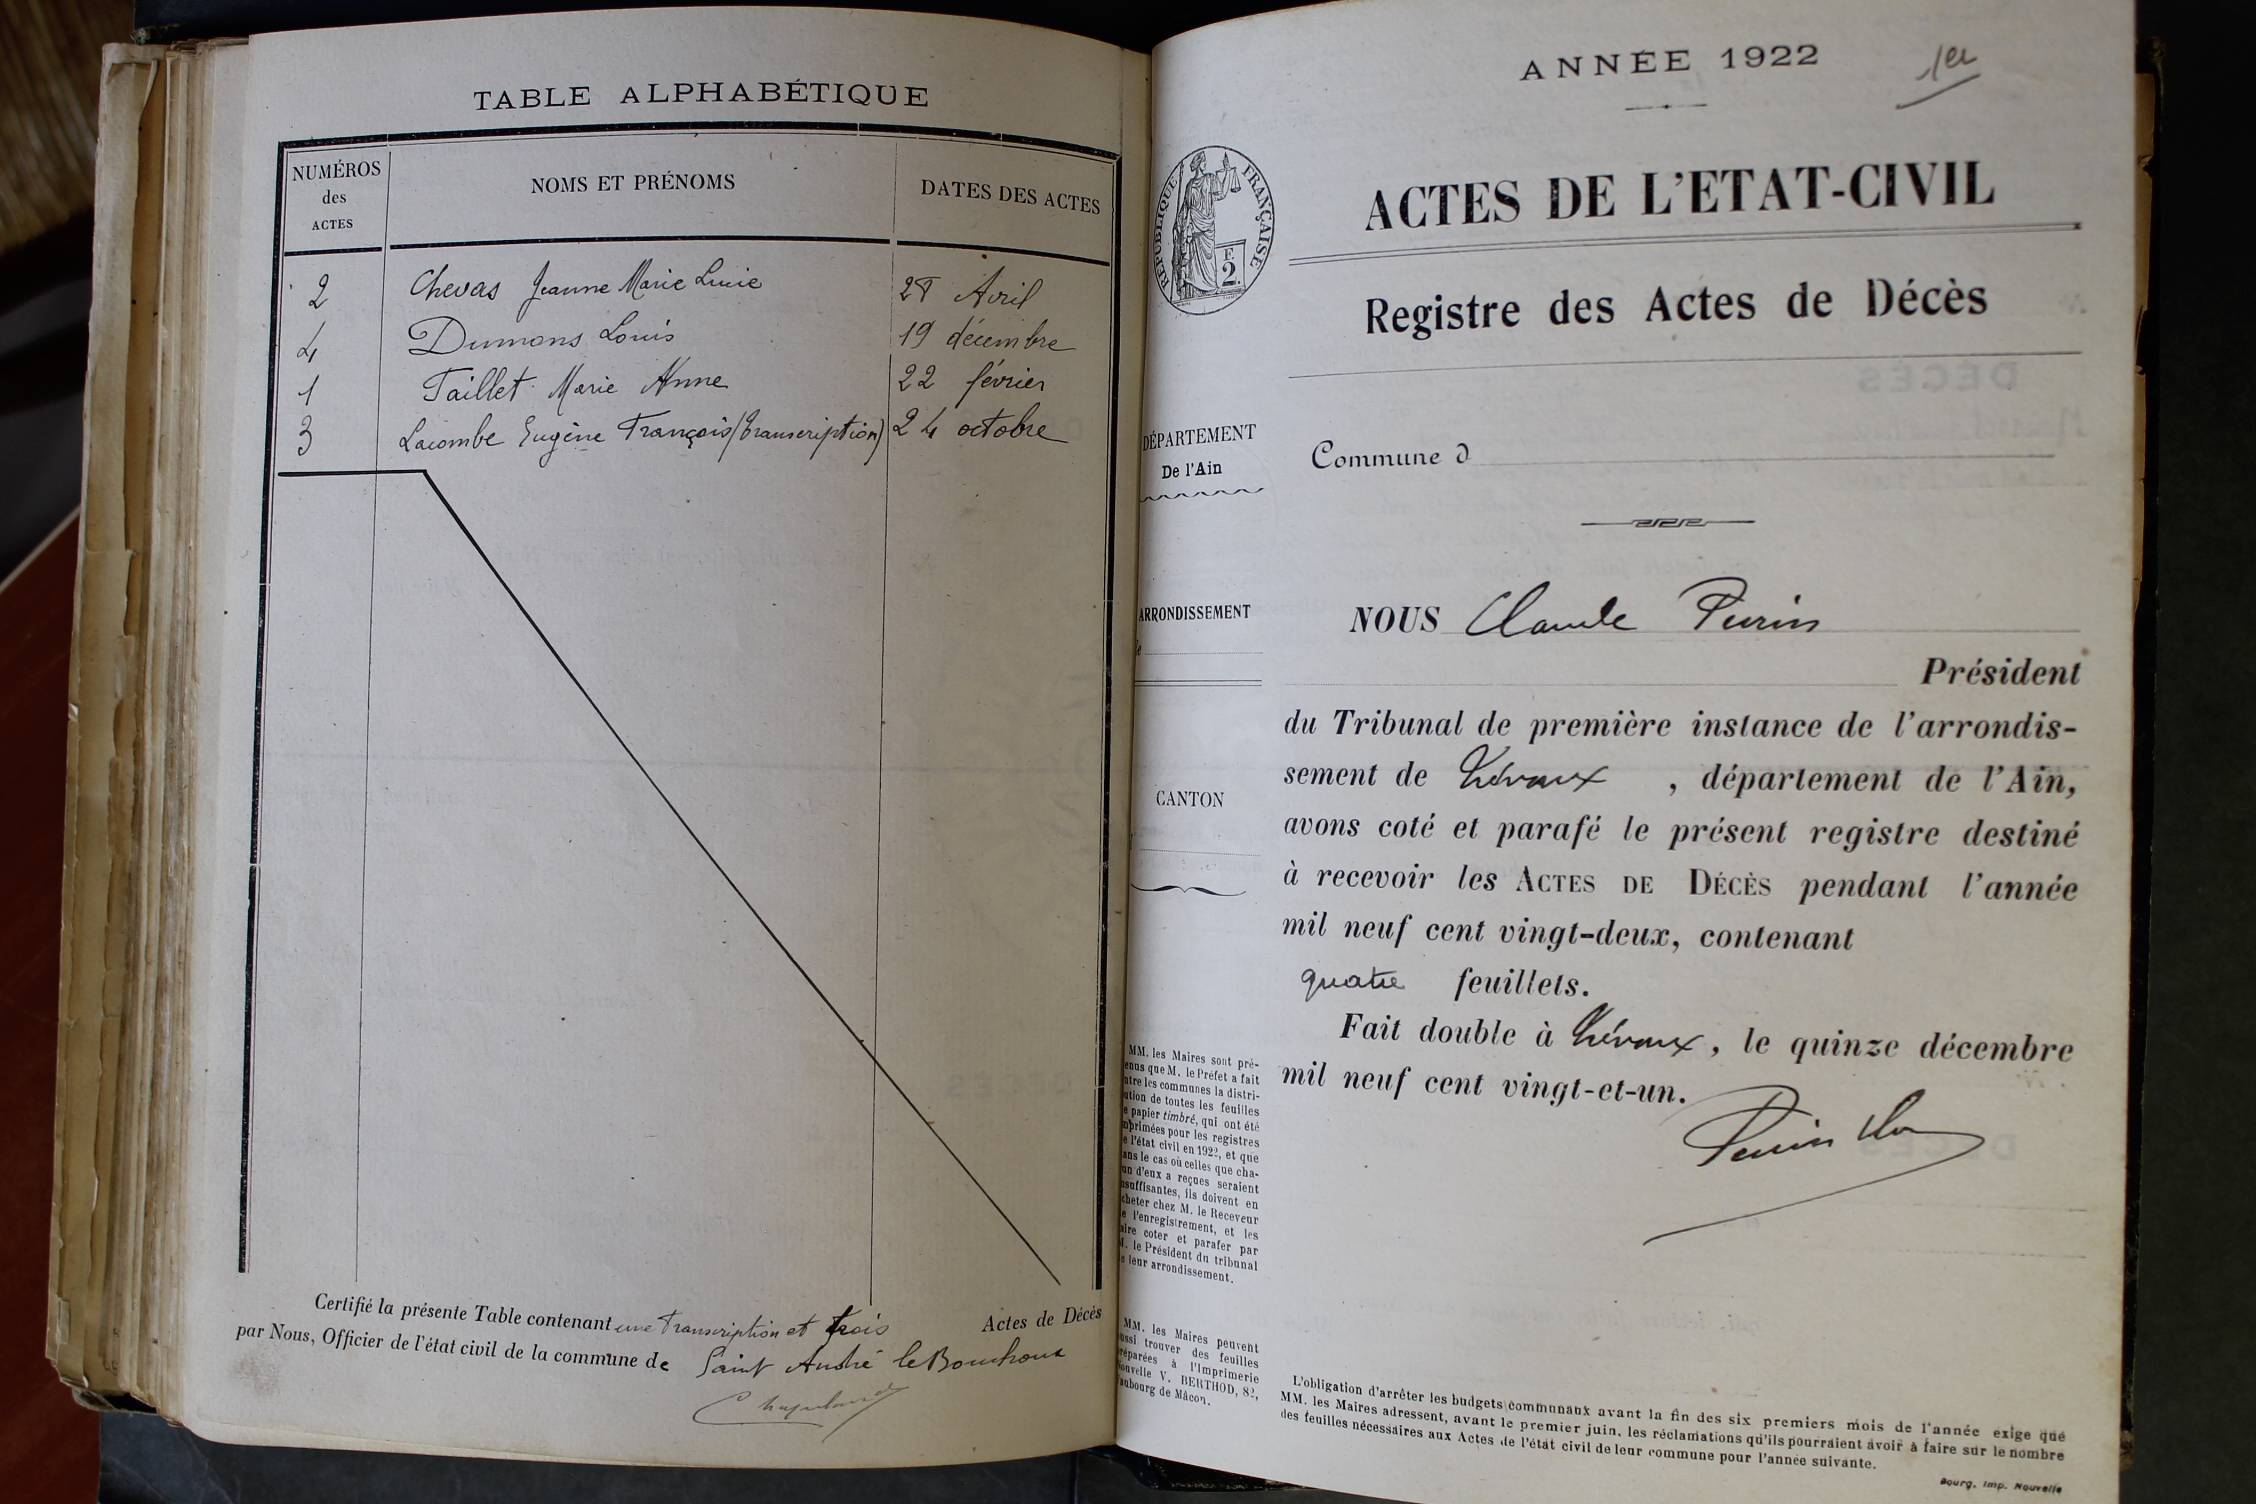 TABLE ALPHABÉTIQUE
NUMÉROS
des
ACTES
NOMS ET PRÉNOMS
DATES DES ACTES
2 Chevas Jeanne Marie Lucie 28 Avril
4 Dumons Louis 19 décembre
1 Taillet Marie Anne 22 février
3 Lacombe Eugène François (transcription) 24 octobre
Certifié la présente Table contenant une Transcription et trois Actes de Décès
par Nous, Officier de l'état civil de la commune de Saint André le Bouchoux
ANNÉE 1922
1er
RÉPUBLIQUE FRANÇAISE
E
2.
ACTES DE L'ETAT-CIVIL
Registre des Actes de Décès
DÉPARTEMENT
De l'Ain
Commune d
ARRONDISSEMENT
CANTON
NOUS Claude Perrin
Président
du Tribunal de première instance de l'arrondis-
sement de Trévoux, département de l'Ain,
avons coté et parafé le présent registre destiné
à recevoir les ACTES DE DÉCÈS pendant l'année
mil neuf cent vingt-deux, contenant
quatre feuillets.
Fait double à Trévoux, le quinze décembre
mil neuf cent vingt-et-un.
Perrin
MM. les Maires sont pré-
enus que M. le Préfet a fait
ntre les communes la distri-
ution de toutes les feuilles
e papier timbré, qui ont été
mprimées pour les registres
e l'état civil en 1922, et que
ans le cas où celles que cha-
un d'eux a reçues seraient
nsuffisantes, ils doivent en
cheter chez M. le Receveur
e l'enregistrement, et les
aire coter et parafer par
M. le Président du tribunal
e leur arrondissement.
MM. les Maires peuvent
ussi trouver des feuilles
réparées à l'Imprimerie
ouvelle V. BERTHOD, 82,
aubourg de Mâcon.
L'obligation d'arrêter les budgets communaux avant la fin des six premiers mois de l'année exige que
MM. les Maires adressent, avant le premier juin, les réclamations qu'ils pourraient avoir à faire sur le nombre
des feuilles nécessaires aux Actes de l'état civil de leur commune pour l'année suivante.
Bourg, Imp. Nouvelle